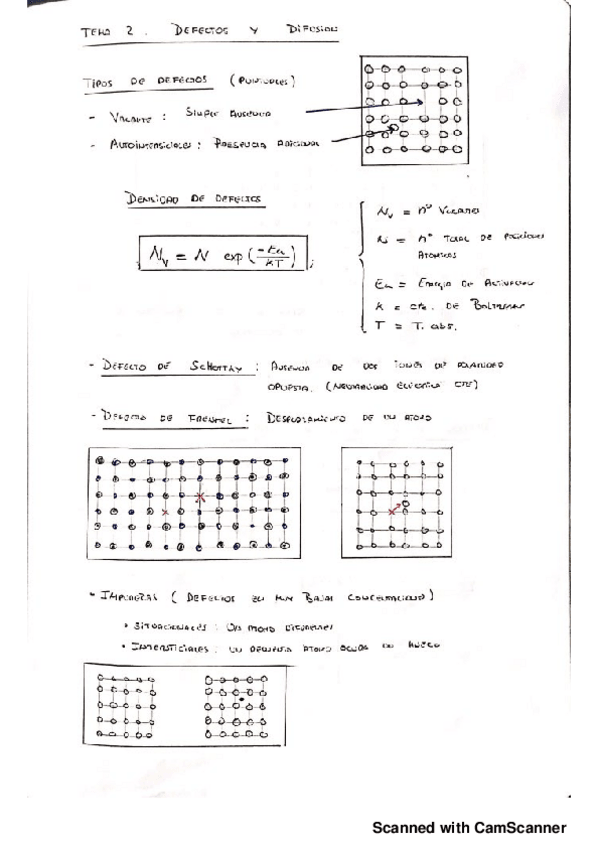 TEMA 2. DEFECTOS Y DIFUSION
TIPOS DE DEFECTOS (PUNTUALES)
- VACANTE: SIMPLE AUSENCIA
- AUTOINTERSTICIALES: PRESENCIA ADICIONAL
DENSIDAD DE DEFECTOS
Nv = N exp(-Ea/KT);
Nv = nº VACANTES
N = nº TOTAL DE POSICIONES
ATOMICAS
Ea = ENERGIA DE ACTIVACION
K = cte. DE BOLTZMAN
T = T. abs.
- DEFECTO DE SCHOTTKY: AUSENCIA DE DOS IONES DE POLARIDAD
OPUESTA. (NEUTRALIDAD ELECTRICA CTE)
- DEFECTO DE FRENKEL: DESPLAZAMIENTO DE UN ATOMO
- IMPUREZAS (DEFECTOS EN MUY BAJAS CONCENTRACIONES)
• UN ATOMO
• INTERSTICIALES: UN PEQUEÑO ATOMO OCUPA UN HUECO
Scanned with CamScanner